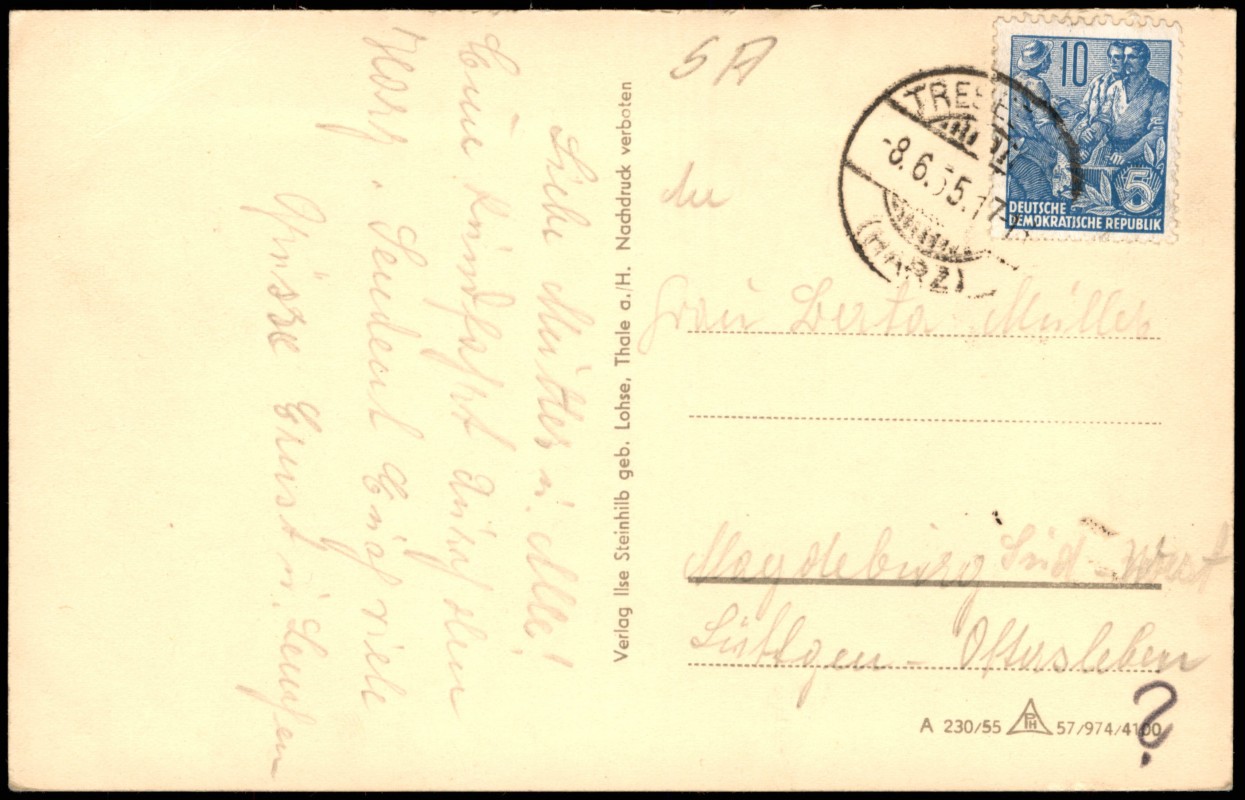 Liebe Mutter u. Alle!
Eine Rundfahrt durch den
Harz. Sendent Euch viele
Grüsse Ernst u. Lenchen
Verlag Ilse Steinhilb geb. Lohse, Thale a./H. Nachdruck verboten
TRESE
-8.6.55.17-
(HARZ)
10
5
DEUTSCHE
DEMOKRATISCHE REPUBLIK
An
Frau Berta Müller
Magdeburg Süd-West
Lüttgen - Ottersleben
A 230/55 PH 57/974/4100
?